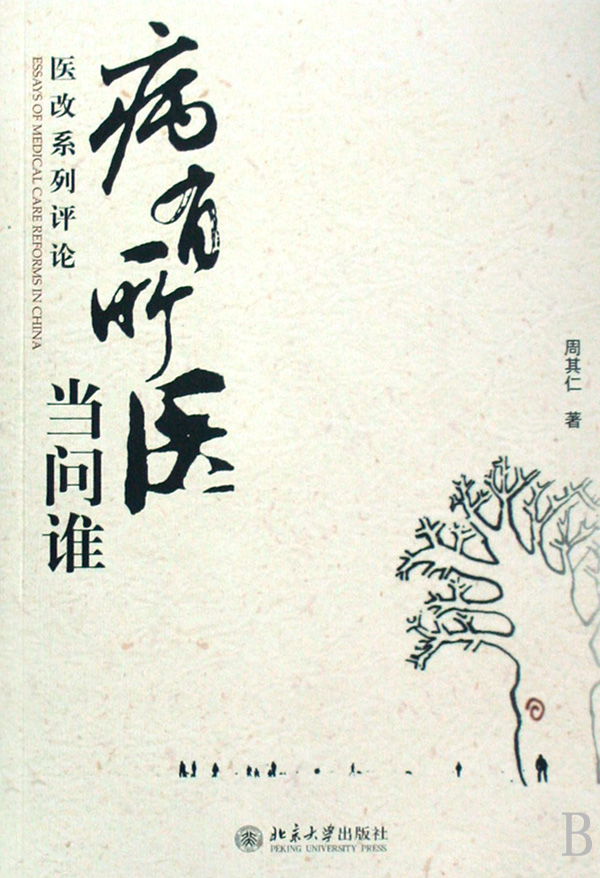 病有所医
当问谁
医改系列评论
ESSAYS OF MEDICAL CARE REFORMS IN CHINA
周其仁 著
北京大学出版社
PEKING UNIVERSITY PRESS
B